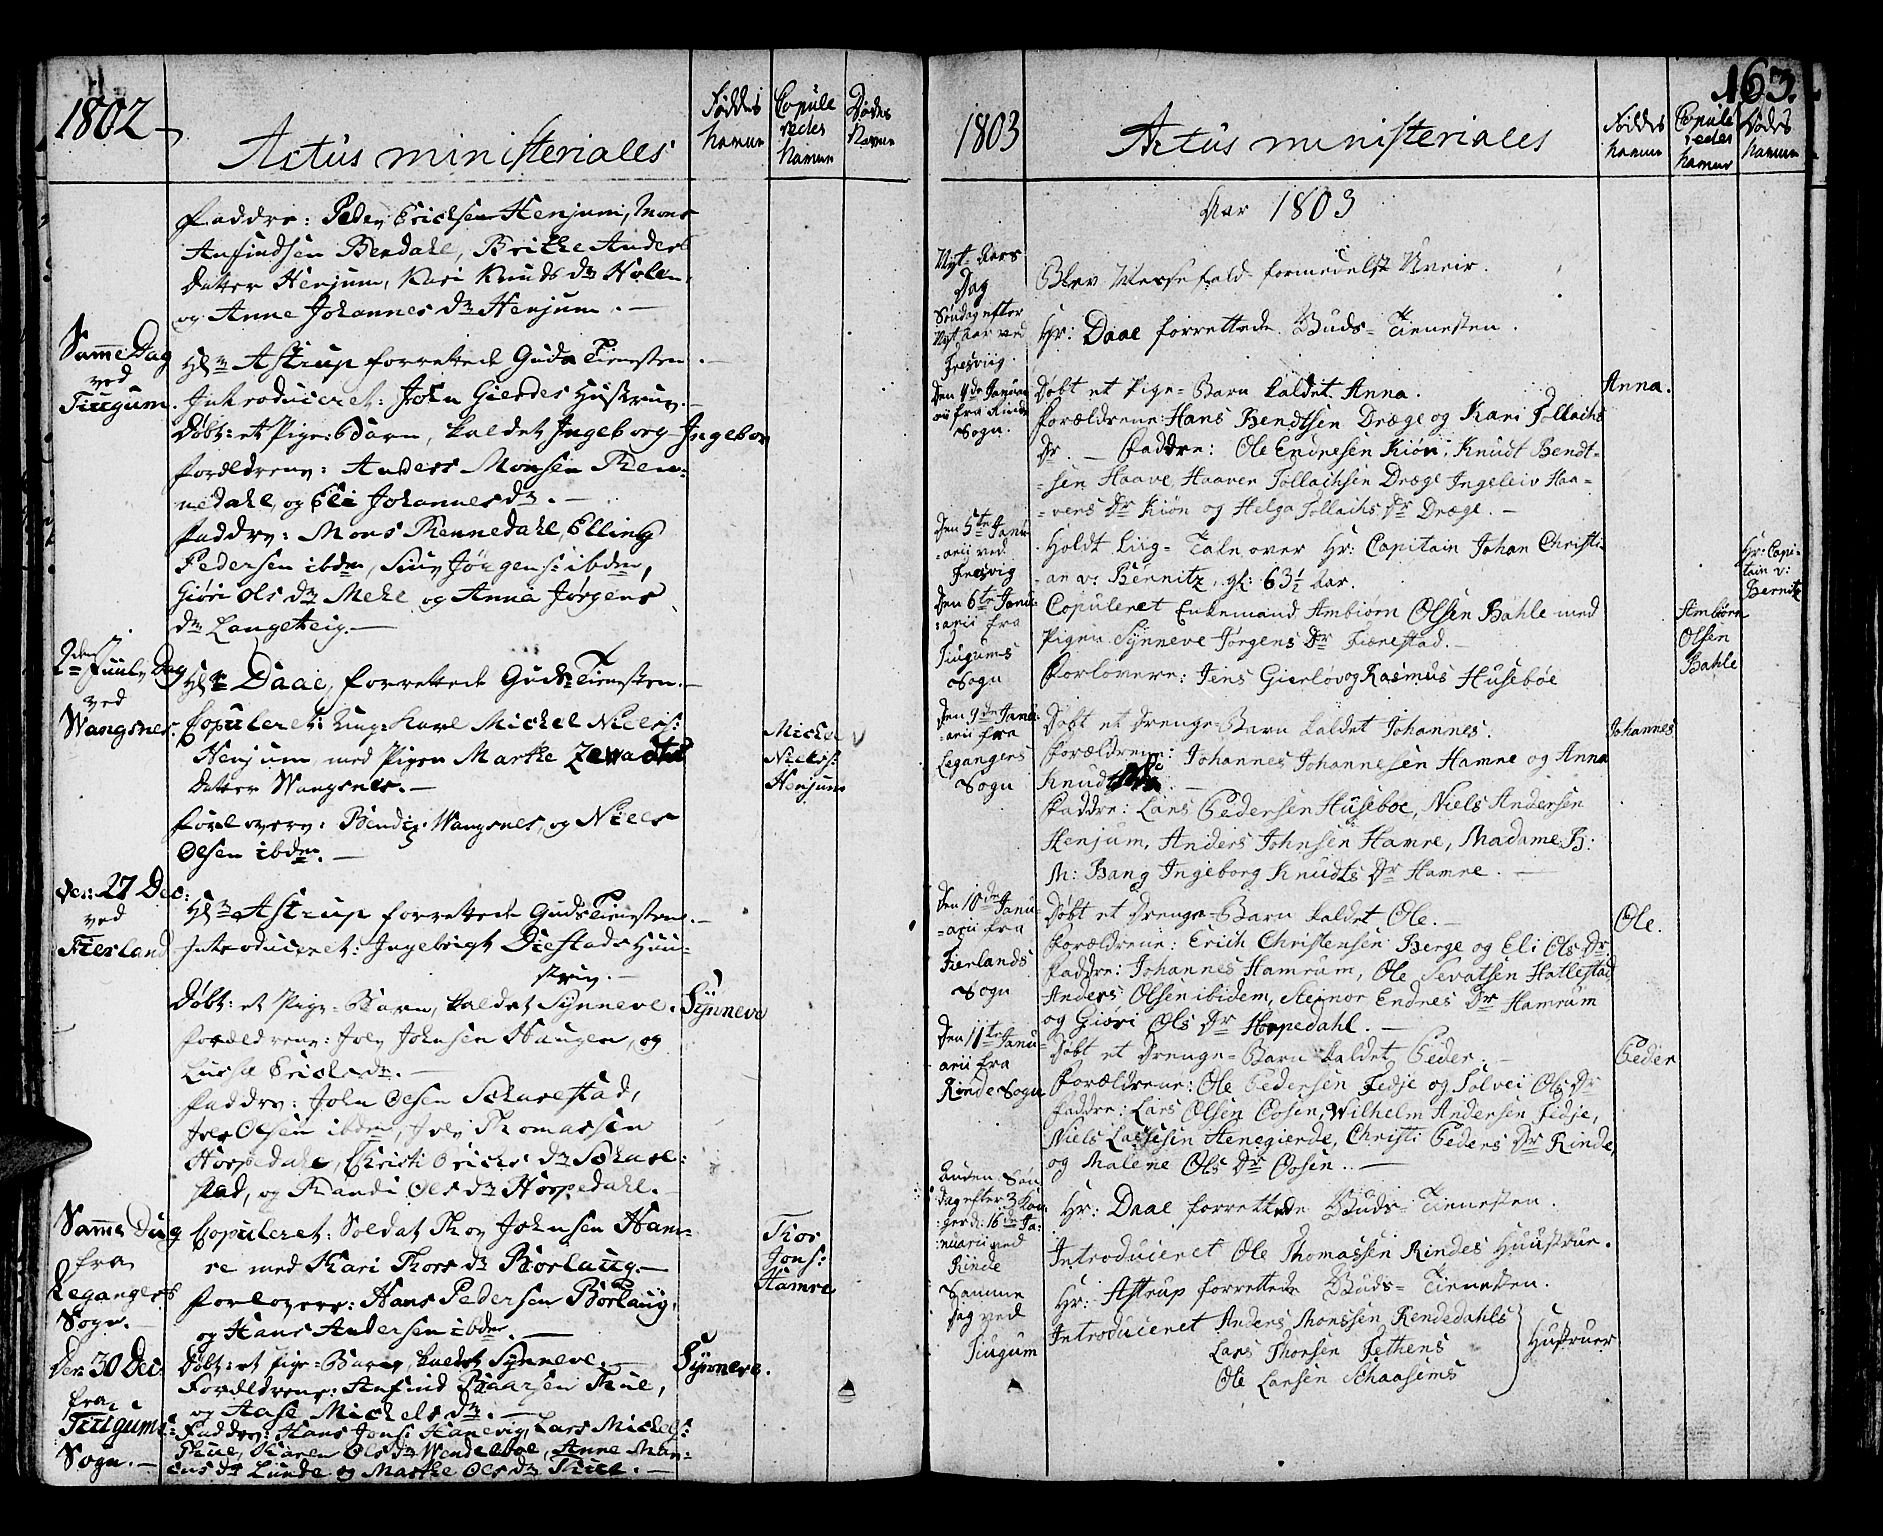 1802
Actus ministeriales
Føddes
Navne
Copule
redes
Navne
Dødes
Navne
Faddre: Peder Erichsen Henjum, Mons
Anfindsen Bendahl, Brithe Anders
Datter Henjum, Kari Knuds Dr Holen,
og Anne Johannes Dr Henjum. —
Samme Dag
ved
Tiugum.
Hr Astrup forrettede Guds Tienesten. —
Introduceret: John Gierdes Hustrue. —
Døbt: et Pige-Barn, kaldet Ingeborg
Ingebor
Forældrene: Anders Monsen Ren-
nedahl, og Eli Johannes Dr. —
Faddre: Mons Rennedahl, Elling
Pedersen ibdm, Siur Jørgens: ibdm,
Giøri Ols Dr Mehl og Anna Jørgens
Dr Langeteig. —
2den Juule Dag
ved
Wangsnes.
Hr Daae, forrettede Guds Tienesten. —
Copuleret: Ung-Karl Michel Niels:
Henjum med Pigen Marthe
Datter Wangsnes. —
Michel
Niels:
Henjum
Forlovere: Bendix Wangsnes, og Niels
Olsen ibdm. —
Den 27 Dec:
ved
Fierland
Hr Astrup forrettede Guds Tienesten. —
Introduceret: Ingebrigt Diestads Huu-
strue. —
Døbt: et Pige-Barn, kaldet Synneve.
Synneve
Forældrene: Joen Johnsen Haugen, og
Lusse Erichs Dr. —
Faddre: John Olsen Scharestad,
Joen Olsen ibdm, Joen Thomassen
Horpedahl, Christi Erichs Dr Schare-
stad, og Randi Ols Dr Horpedahl. —
Samme Dag
fra
Legangers
Sogn. —
Copuleret: Soldat Thor Johnsen Ham-
re med Kari Thors Dr Borlaug. —
Forlovere: Hans Pedersen Borlaug,
og Hans Andersen ibdm. —
Thor
Jons:
Hamre
Den 30 Dec:
fra
Tiugums
Sogn. —
Døbt: et Pige-Barn kaldet Synneve. —
Synneve.
Forældrene: Anfind Baarsen Thue,
og Aase Michels Dr. —
Faddre: Hans Jons: Hanevig, Lars Michels:
Thue, Karen Ols Dr Wendelboe, Anne Mon-
sens Dr Lunde og Marthe Ols Dr Thue. —
163.
1803
Actus ministeriales
Føddes
Navne
Copule
redes
Navne
Dødes
Navne
Aar 1803
Nyt-Aars
Dag
Blev Messefald formedelst Uveir.
Søndag efter
Nyt Aar ved
Fresviig.
Hr: Daae forrettede Guds-Tienesten.
Den 4de Janua-
rii fra Rinde
Sogn.
Døbt et Pige-Barn kaldet Anna.
Anna.
Forældrene: Hans Bendtsen Dræge og Kari Tollachs
Dr. — Faddre: Ole Endresen Kiøn, Knudt Bendt-
-sen Haave, Haaver Tollachsen Dræge Ingeleiv Haa-
-vers Dr Kiøn og Helga Tollachs Dr Dræge. —
Den 5te Janu-
-arii ved
Fresvig
Holdt Liig-Tale over Hr: Capitain Johan Christi-
-an v: Bernitz, gl: 63½ Aar.
Hr: Capi-
tain v:
Bernitz
Den 6te Janu-
-arii fra
Tiugums
Sogn
Copuleret Enkemand Ambiørn Olsen Bahle med
Pigen Synneve Jørgens Dr Fierestad. —
Forlovere: Jens Gierløv og Rasmus Husebøe
Ambiørn
Olsen
Bahle
Den 9de Janu-
-arii fra
Legangers
Sogn
Døbt et Drenge-Barn kaldet Johannes.
Johannes
Forældrene: Johannes Johannesen Hamre og Anna
Knudts
Faddre: Lars Pedersen Husebøe, Niels Andersen
Henjum, Anders Johnsen Hamre, Madame B:
M: Bang Ingeborg Knudts Dr Hamre. —
Den 10de Janu-
-arii fra
Fierlands
Sogn
Døbt et Drenge-Barn kaldet Ole. —
Ole.
Forældrene: Erich Christensen Berge og Eli Ols Dr
Faddre: Johannes Hamrum, Ole Sevatsen Hatlestad
Anders Olsen ibidem, Steinor Endres Dr Hamrum
og Giøri Ols Dr Horpedahl. —
Den 11te Janu-
arii fra
Rinde Sogn
Døbt et Drenge-Barn kaldet Peder. —
Peder
Forældrene: Ole Pedersen Fedje og Solvei Ols Dr
Faddre: Lars Olsen Oosen, Wilhelm Andersen Fedje,
Niels Lassesen Stenegierde, Christi Peders Dr Rinde,
og Malene Ols Dr Oosen. —
Anden Søn-
dag efter 3 Kon-
ger d: 16de Ja-
nuarii ved
Rinde
Hr: Daae forrettede Guds-Tienesten.
Introduceret Ole Thomassen Rindes Huustrue.
Samme
Dag ved
Tiugum
Hr: Astrup forrettede Guds-Tienesten.
Introduceret Anders Monssen Rendedahls
Lars Thorsen Fethens
Ole Larsen Schaasems
Hustruer